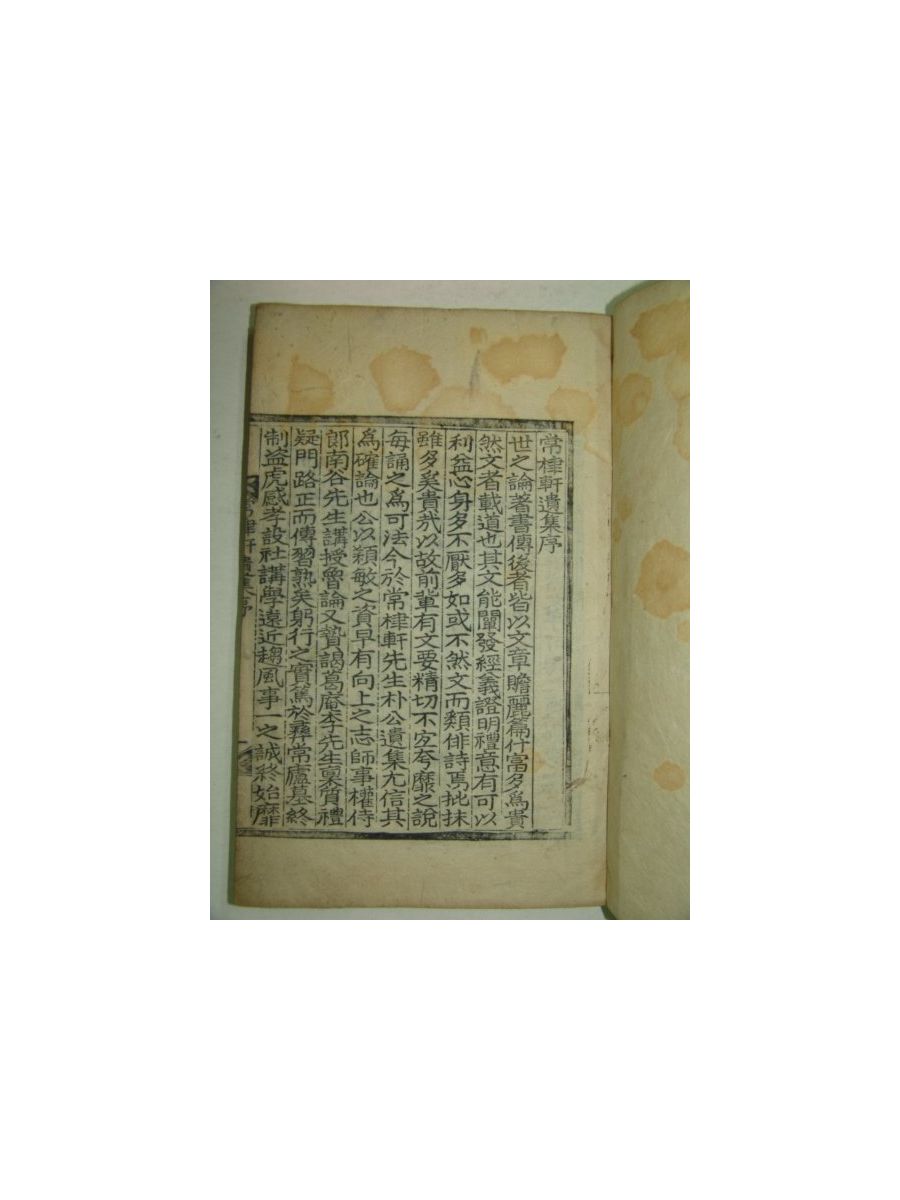 常棣軒遺集序
世之論著書傳後者皆以文章贍麗篇什富多爲貴
然文者載道也其文能闡發經義證明禮意有可以
利益心身多不厭多如或不然文而類俳詩焉批抹
雖多奚貴哉以故前輩有文要精切不宐夸靡之說
每誦之爲可法今於常棣軒先生朴公遺集尤信其
爲確論也公以穎敏之資早有向上之志師事權侍
郞南谷先生講授魯論又贄謁葛庵李先生稟質禮
疑門路正而傳習熟矣躬行之實篤於彛常廬墓終
制盜虎感孝設社講學遠近趨風事一之誠終始靡
軒遺集序